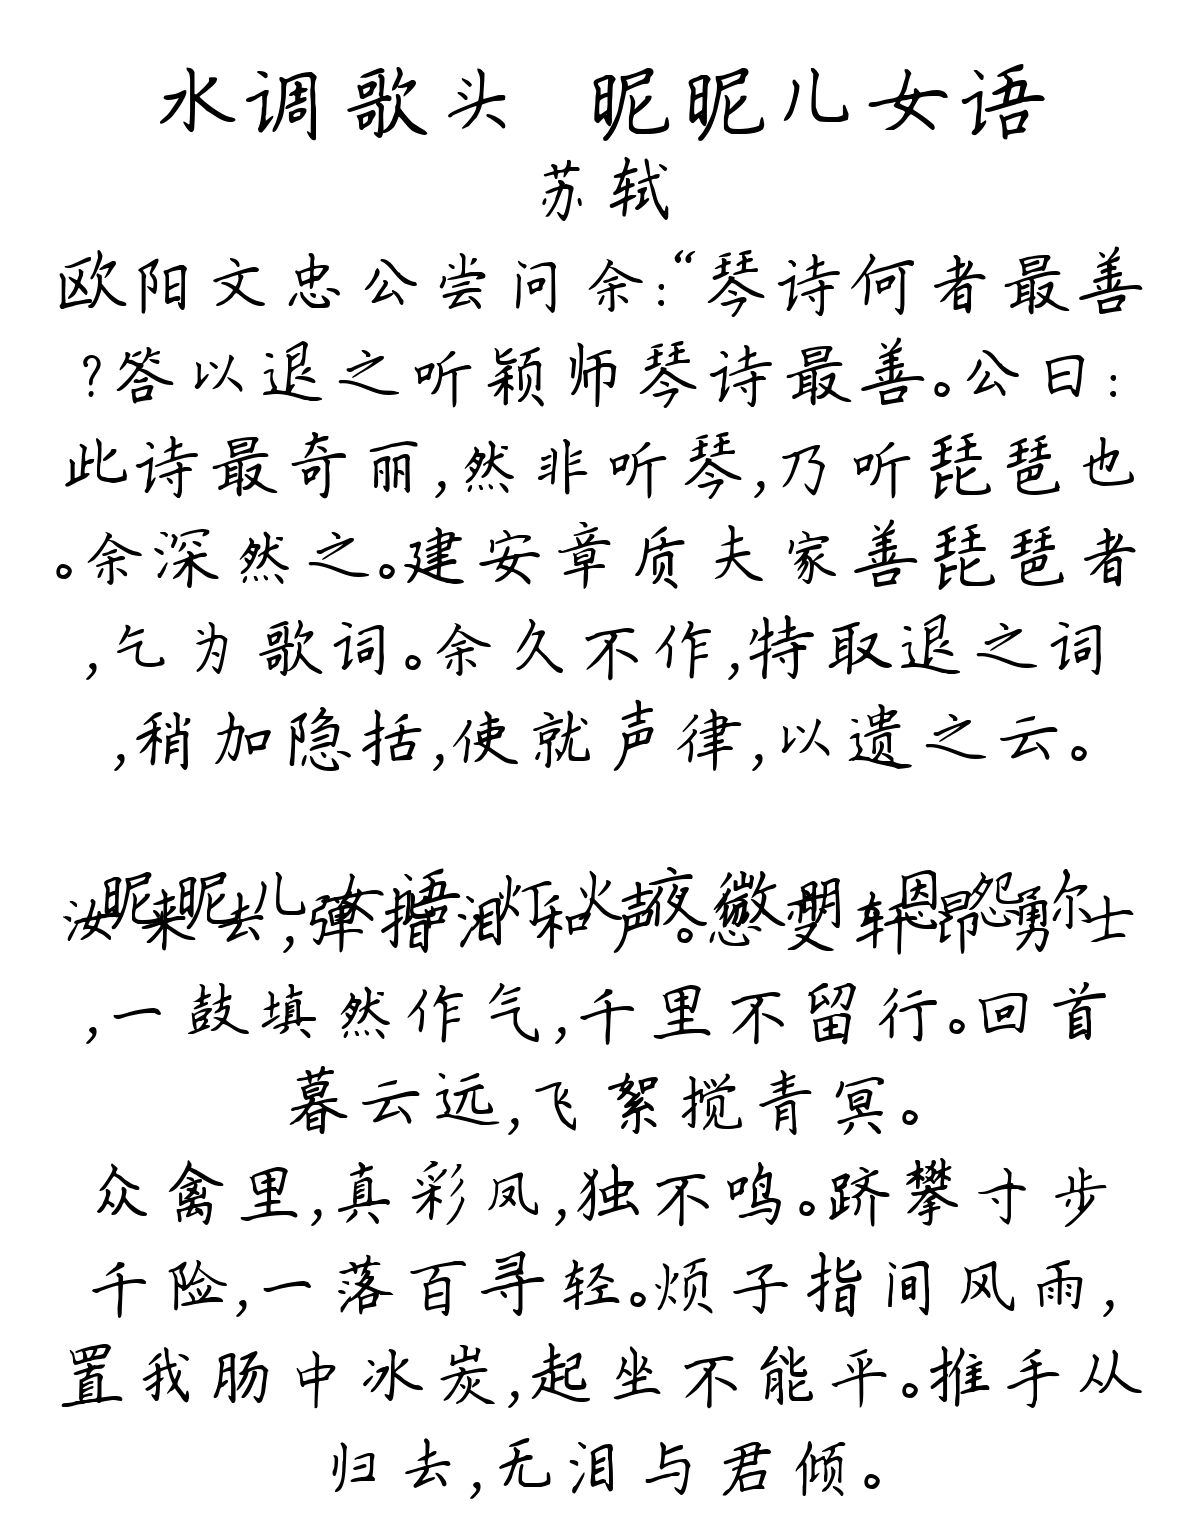 水调歌头 昵昵儿女语
苏轼
欧阳文忠公尝问余:“琴诗何者最善
?答以退之听颖师琴诗最善。公曰:
此诗最奇丽,然非听琴,乃听琵琶也
。余深然之。建安章质夫家善琵琶者
,乞为歌词。余久不作,特取退之词
,稍加隐括,使就声律,以遗之云。
昵昵儿女语 灯火夜微明 恩怨尔
汝来去,弹指泪和声。忽变轩昂勇士
,一鼓填然作气,千里不留行。回首
暮云远,飞絮搅青冥。
众禽里,真彩凤,独不鸣。跻攀寸步
千险,一落百寻轻。烦子指间风雨,
置我肠中冰炭,起坐不能平。推手从
归去,无泪与君倾。